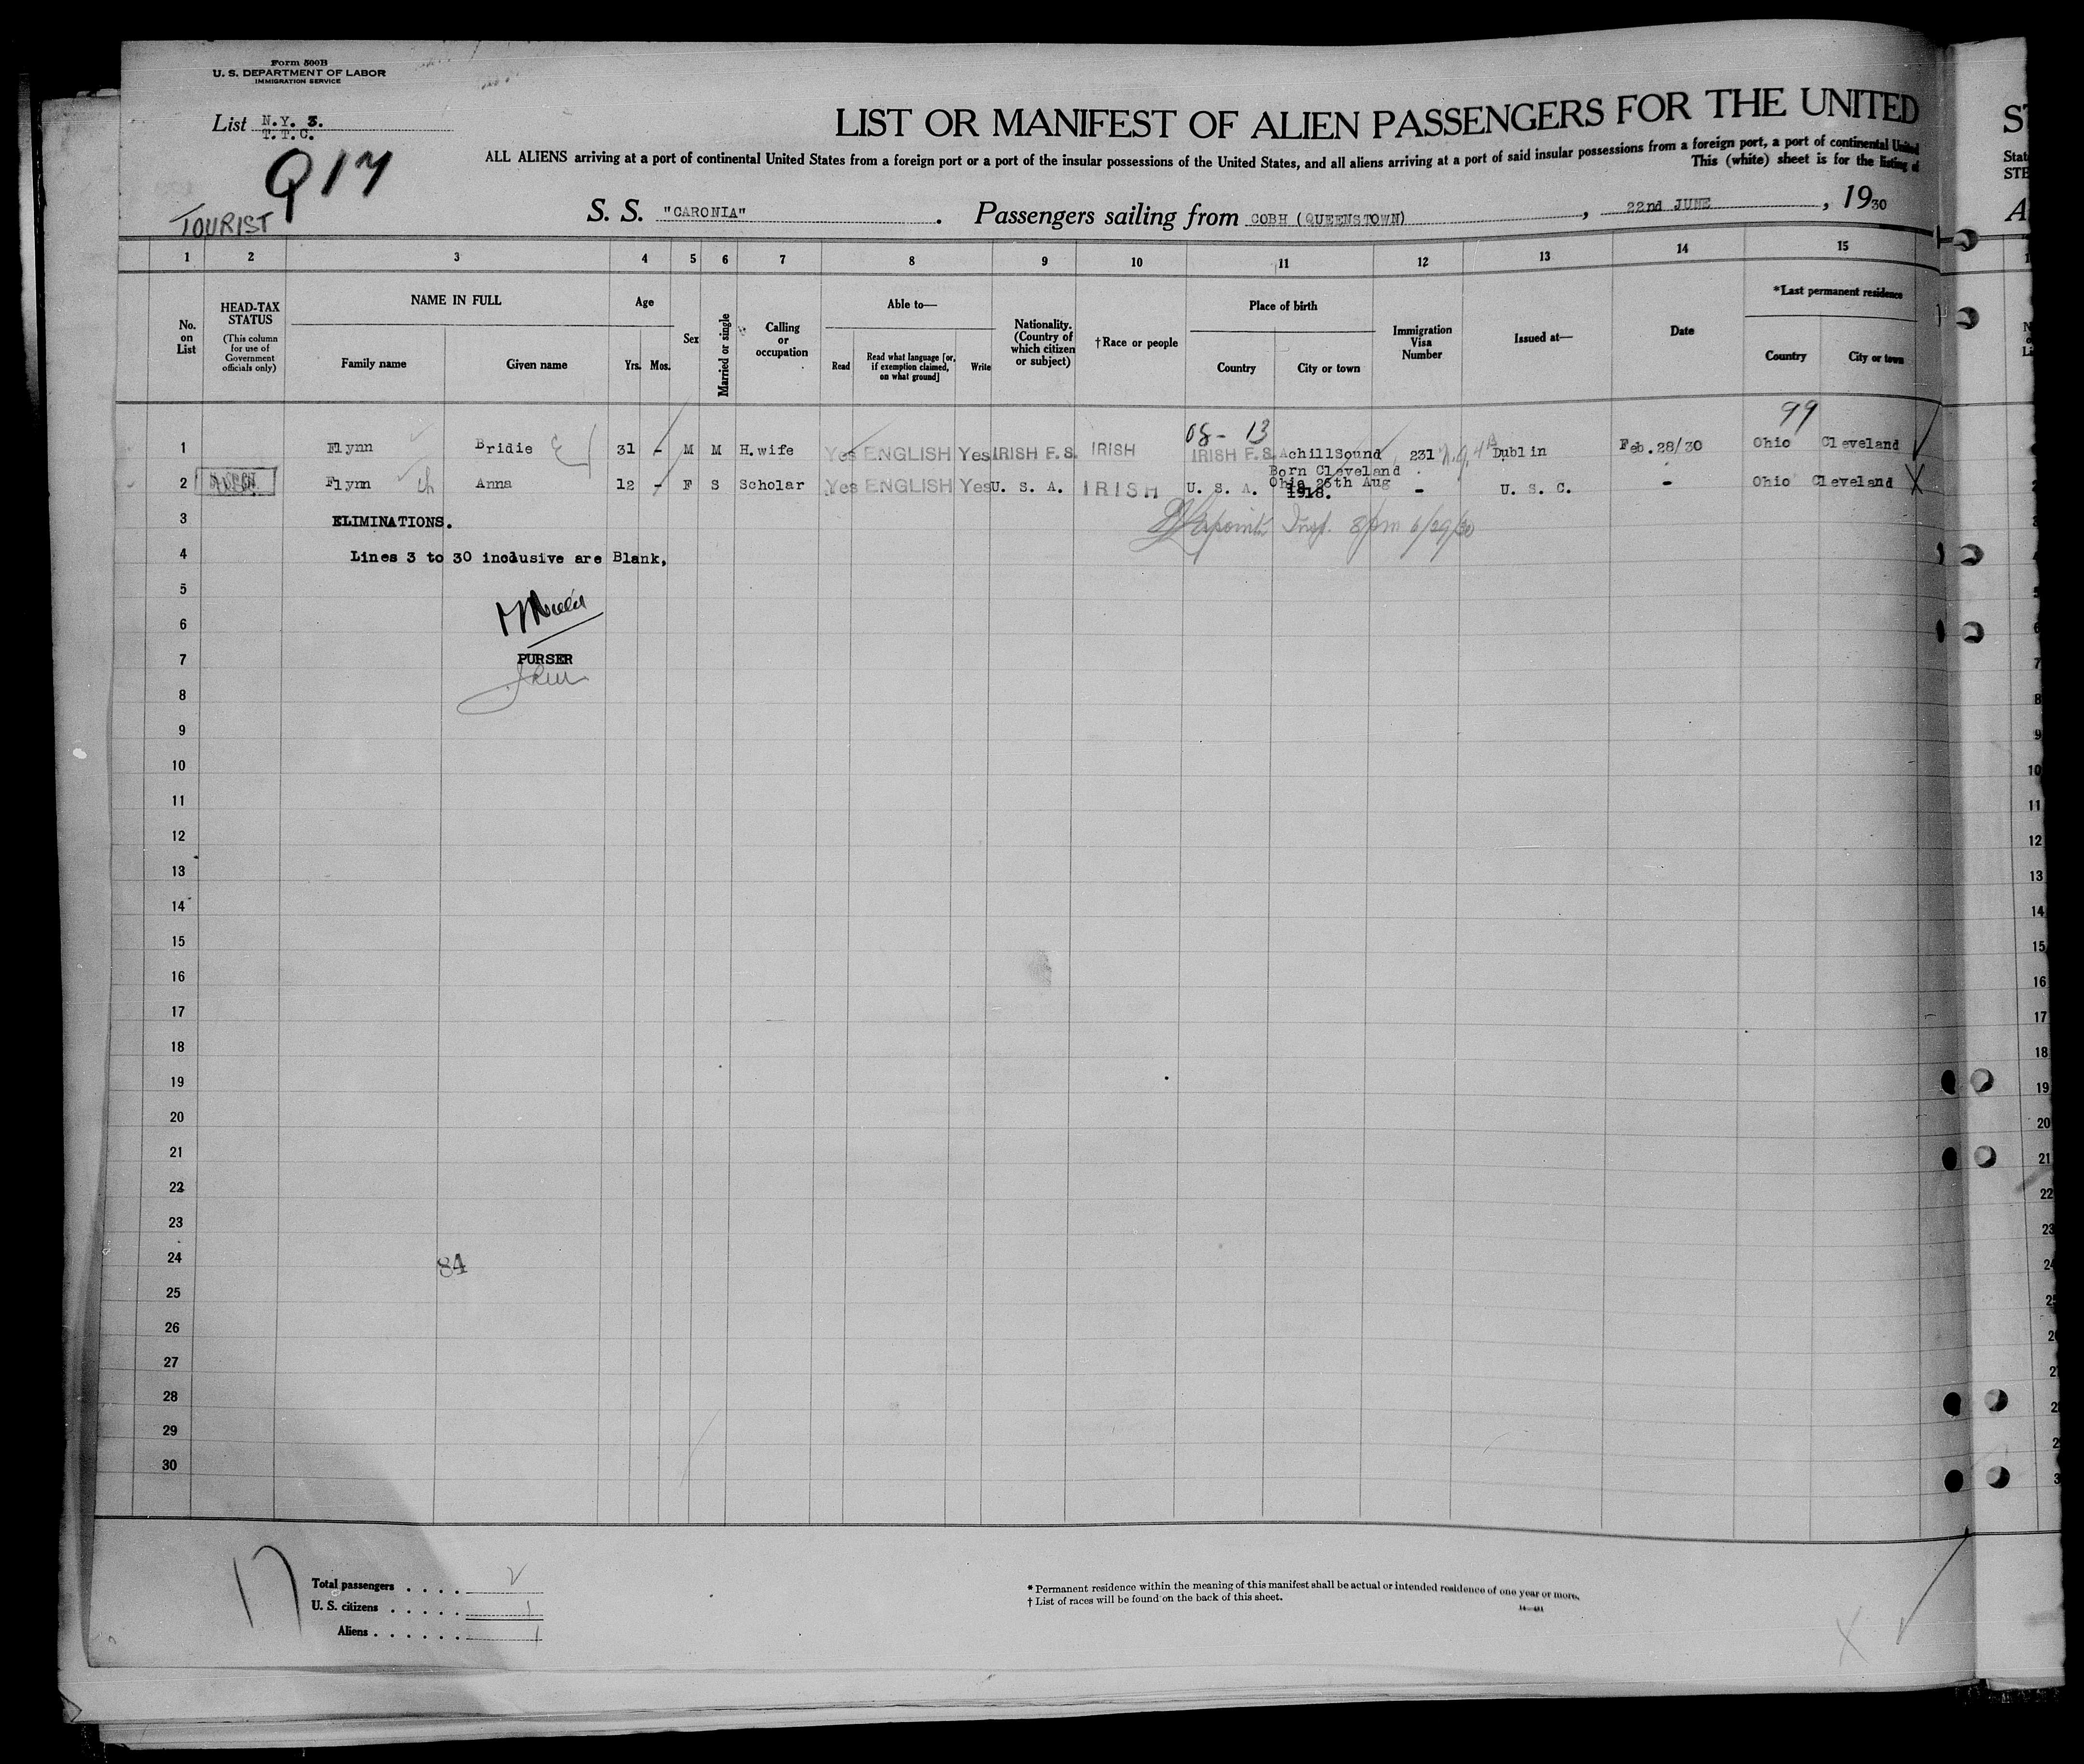 Form 500B
U. S. DEPARTMENT OF LABOR
IMMIGRATION SERVICE
List N.Y. 3.
T.T.C.
Q17
TOURIST
LIST OR MANIFEST OF ALIEN PASSENGERS FOR THE UNITED
ALL ALIENS arriving at a port of continental United States from a foreign port or a port of the insular possessions of the United States, and all aliens arriving at a port of said insular possessions from a foreign port, a port of continental United
This (white) sheet is for the listing of
S. S. "CARONIA" . Passengers sailing from COBH (QUEENSTOWN) , 22nd JUNE , 1930
1 2 3 4 5 6 7 8 9 10 11 12 13 14 15
No. on List
HEAD-TAX STATUS
(This column for use of Government officials only)
NAME IN FULL
Family name Given name
Age
Yrs. Mos.
Sex
Married or single
Calling or occupation
Able to—
Read Read what language [or, if exemption claimed, on what ground] Write
Nationality. (Country of which citizen or subject)
†Race or people
Place of birth
Country City or town
Immigration Visa Number
Issued at—
Date
*Last permanent residence
Country City or town
08- 13 99
1 Flynn Bridie 31 - M M H.wife Yes ENGLISH Yes IRISH F.S. IRISH IRISH F.S. AchillSound 231 Dublin Feb.28/30 Ohio Cleveland
2 Flynn Anna 12 - F S Scholar Yes ENGLISH Yes U. S. A. IRISH U. S. A. Born Cleveland Ohio 26th Aug 1918. - U. S. C. - Ohio Cleveland X
3 ELIMINATIONS.
Insp. 8pm 6/29/30
4 Lines 3 to 30 inclusive are Blank,
5
6
7 PURSER
8
9
10
11
12
13
14
15
16
17
18
19
20
21
22
23
24 84
25
26
27
28
29
30
Total passengers . . . . 2
U. S. citizens . . . . . 1
Aliens . . . . . . 1
* Permanent residence within the meaning of this manifest shall be actual or intended residence of one year or more.
† List of races will be found on the back of this sheet.